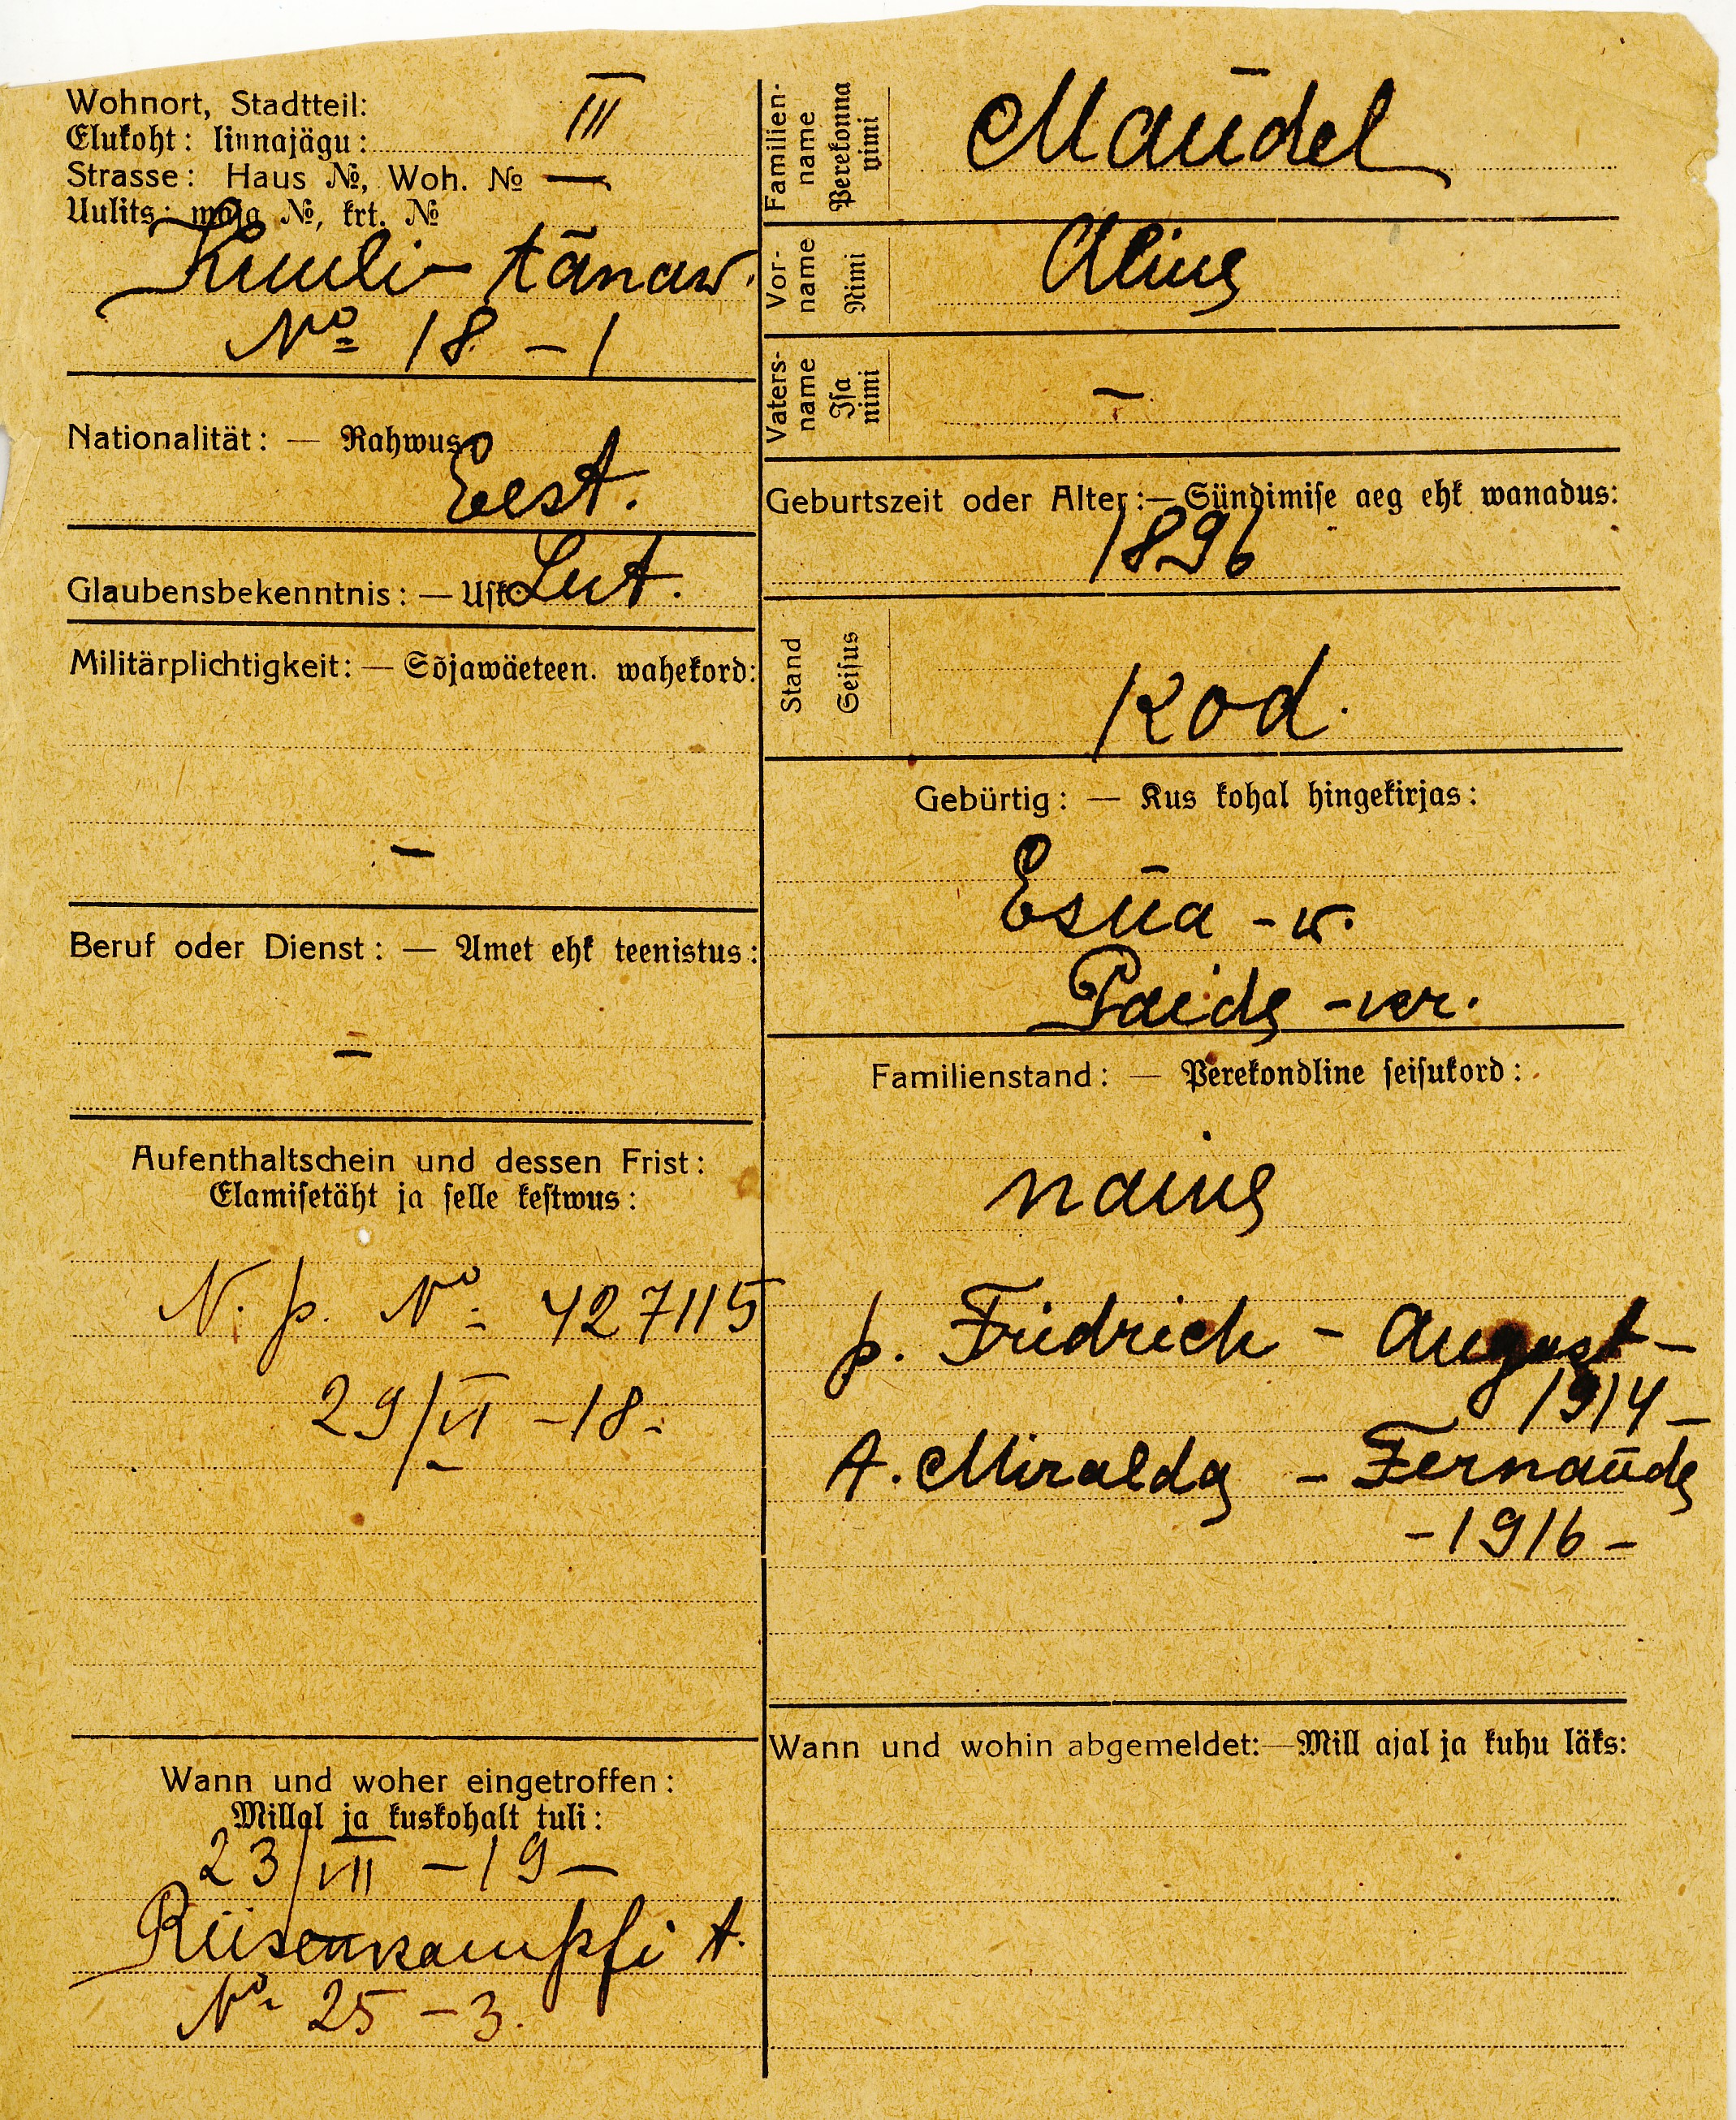 Wohnort, Stadtteil:
Elukoht: linnajägu: III
Strasse: Haus №, Woh. № —
Uulits: maja №, krt. №
Kuuli- tänaw.
№ 18 – 1
Nationalität: — Rahwus
Eest.
Glaubensbekenntnis: — Usk Lut.
Militärplichtigkeit: — Sõjawäeteen. wahekord:
–
Beruf oder Dienst: — Amet ehk teenistus:
–
Aufenthaltschein und dessen Frist:
Elamisetäht ja selle kestwus:
N. p. № 427115
29/VI –18.
Wann und woher eingetroffen:
Millal ja kuskohalt tuli:
23/VII –19–
t.
№ 25 – 3.
Familien-
name
Perekonna
nimi
Maūdel
Vor-
name
Nimi
Aline
Vaters-
name
Isa
nimi
–
Geburtszeit oder Alter:— Sündimise aeg ehk wanadus:
1896
Stand
Seisus
Kod.
Gebürtig: — Kus kohal hingekirjas:
Esūa - w.
Paide - kr.
Familienstand: — Perekondline seisukord:
naine
p. Fridrich – August –
1914 –
t. Miralda – Fernaūde
– 1916 –
Wann und wohin abgemeldet:—Mill ajal ja kuhu läks: